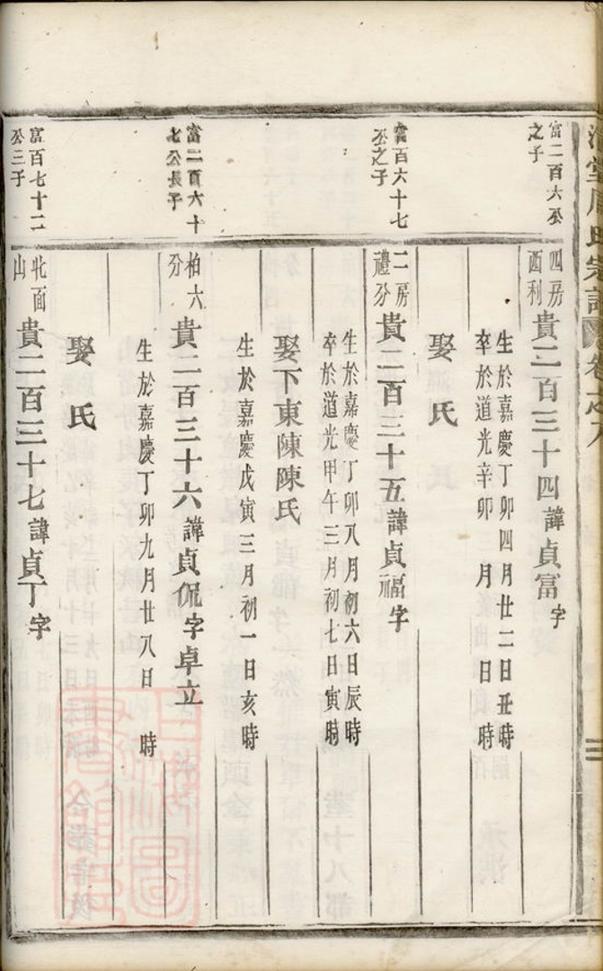 周氏宗譜 卷之九
富二百六公
之子
四房
酉利
貴二百三十四諱貞富字
生於嘉慶丁卯四月廿二日丑時
卒於道光辛卯 月 日 時
娶 氏
富百六十七
公之子
二房
禮分
貴二百三十五諱貞福字
生於嘉慶丁卯八月初六日辰時
卒於道光甲午三月初七日寅時
娶下東陳陳氏
生於嘉慶戊寅三月初一日亥時
富二百六十
七公長子
柏六
分
貴二百三十六諱貞侃字卓立
生於嘉慶丁卯九月廿八日 時
娶 氏
富百七十二
公三子
北面
山
貴二百三十七諱貞丁字